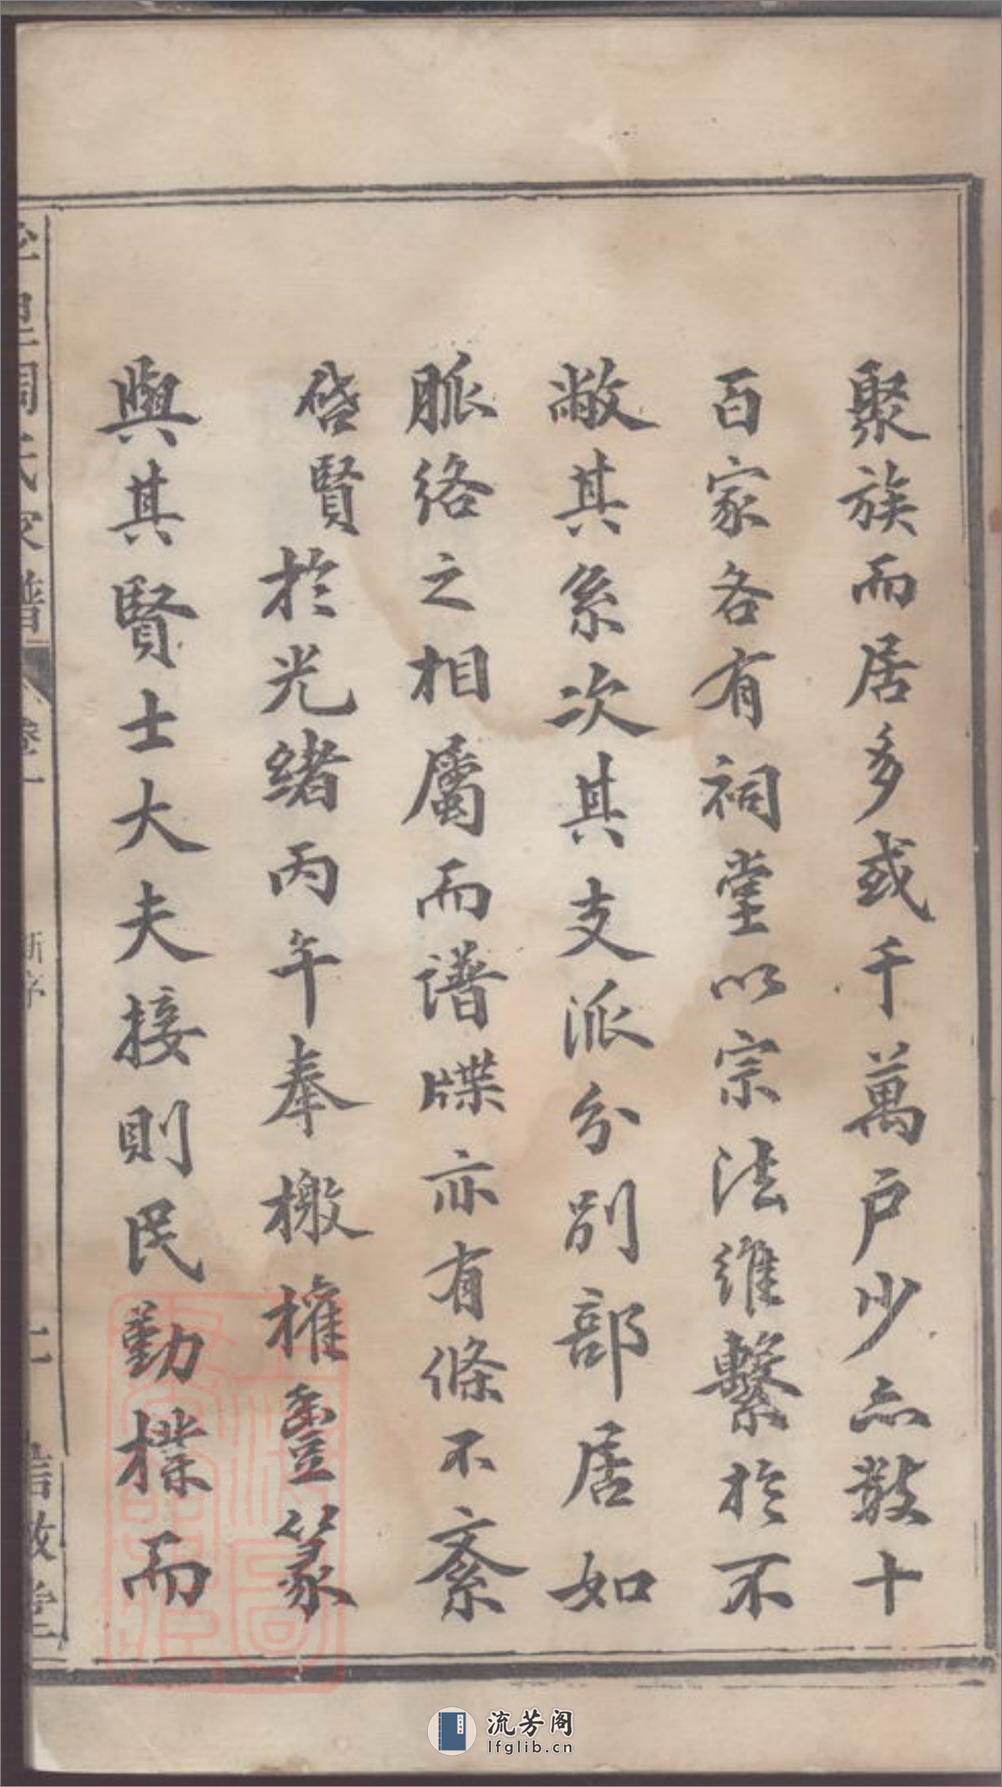 聚族而居多或千萬户少亦數十
百家各有祠堂以宗法維繫於不
敝其系次其支派分別部居如
脈絡之相屬而譜牒亦有條不紊
啓賢於光緒丙午奉檄權盩篆
與其賢士大夫接則民勤樸而
氏家譜
卷一
新序
流芳阁
lfglib.cn